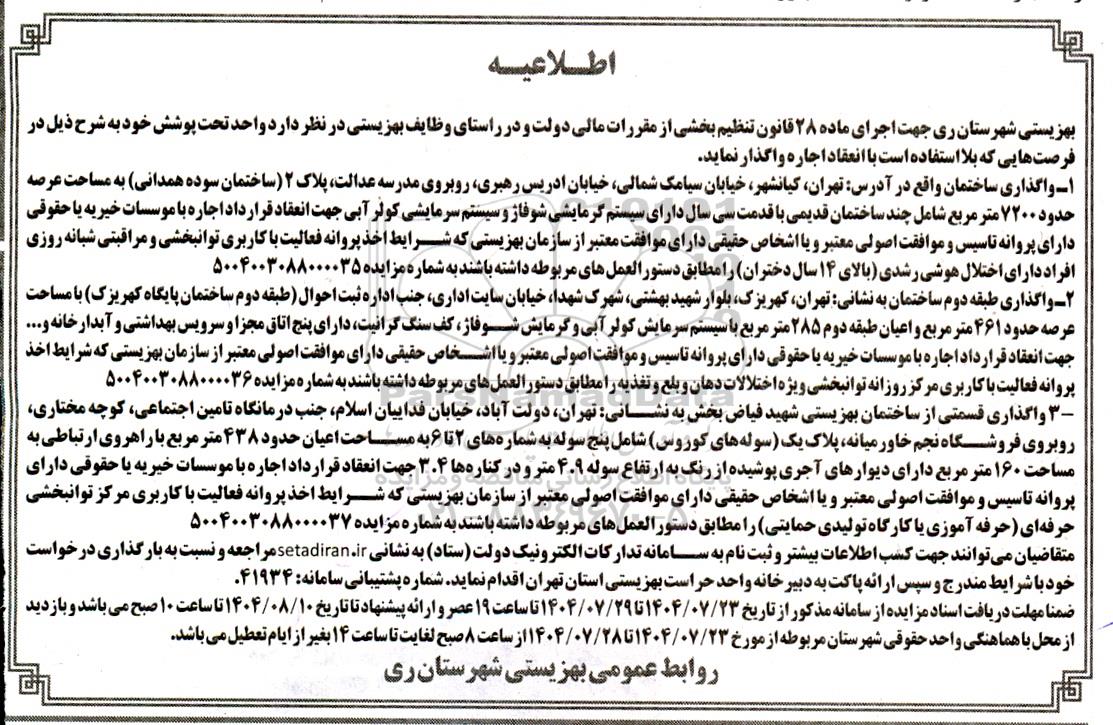 اطـــلاعیـــه
بهزیستی شهرستان ری جهت اجرای ماده ۲۸ قانون تنظیم بخشی از مقررات مالی دولت و در راستای وظایف بهزیستی در نظر دارد واحد تحت پوشش خود به شرح ذیل در
فرصت‌هایی که بلا استفاده است با انعقاد اجاره واگذار نماید.
۱ـ واگذاری ساختمان واقع در آدرس: تهران، کیانشهر، خیابان سیامک شمالی، خیابان ادریس رهبری، روبروی مدرسه عدالت، پلاک ۲ (ساختمان سوده همدانی) به مساحت عرصه
حدود ۷۲۰۰ متر مربع شامل چند ساختمان قدیمی با قدمت سی سال دارای سیستم گرمایشی شوفاژ و سیستم سرمایشی کولر آبی جهت انعقاد قرارداد اجاره با موسسات خیریه یا حقوقی
دارای پروانه تاسیس و موافقت اصولی معتبر و یا اشخاص حقیقی دارای موافقت معتبر از سازمان بهزیستی که شـــرایط اخذ پروانه فعالیت با کاربری توانبخشی و مراقبتی شبانه روزی
افراد دارای اختلال هوشی رشدی (بالای ۱۴ سال دختران) را مطابق دستورالعمل های مربوطه داشته باشند به شماره مزایده ۵۰۰۴۰۰۳۰۸۸۰۰۰۰۳۵
۲ـ واگذاری طبقه دوم ساختمان به نشانی: تهران، کهریزک، بلوار شهید بهشتی، شهرک شهدا، خیابان سایت اداری، جنب اداره ثبت احوال (طبقه دوم ساختمان پایگاه کهریزک) با مساحت
عرصه حدود ۴۶۱ متر مربع و اعیان طبقه دوم ۲۸۵ متر مربع با سیستم سرمایش کولر آبی و گرمایش شـــوفاژ، کف سنگ گرانیت، دارای پنج اتاق مجزا و سرویس بهداشتی و آبدارخانه و...
جهت انعقاد قرارداد اجاره با موسسات خیریه یا حقوقی دارای پروانه تاسیس و موافقت اصولی معتبر و یا اشـــخاص حقیقی دارای موافقت اصولی معتبر از سازمان بهزیستی که شرایط اخذ
پروانه فعالیت با کاربری مرکز روزانه توانبخشی ویژه اختلالات دهان و بلع و تغذیه را مطابق دستورالعمل های مربوطه داشته باشند به شماره مزایده ۵۰۰۴۰۰۳۰۸۸۰۰۰۰۳۶
۳- واگذاری قسمتی از ساختمان بهزیستی شهید فیاض بخش به نشـــانی: تهران، دولت آباد، خیابان فداییان اسلام، جنب درمانگاه تامین اجتماعی، کوچه مختاری،
روبروی فروشـــگاه نجم خاورمیانه، پلاک یک (سوله‌های کوروس) شامل پنج سوله به شماره‌های ۲ تا ۶ به مســـاحت اعیان حدود ۴۳۸ متر مربع با راهروی ارتباطی به
مساحت ۱۶۰ متر مربع دارای دیوارهای آجری پوشیده از رنگ به ارتفاع سوله ۴.۹ متر و در کناره‌ها ۳.۴ جهت انعقاد قرارداد اجاره با موسسات خیریه یا حقوقی دارای
پروانه تاسیس و موافقت اصولی معتبر و یا اشخاص حقیقی دارای موافقت اصولی معتبر از سازمان بهزیستی که شـــرایط اخذ پروانه فعالیت با کاربری مرکز توانبخشی
حرفه‌ای (حرفه آموزی یا کارگاه تولیدی حمایتی) را مطابق دستورالعمل‌های مربوطه داشته باشند به شماره مزایده ۵۰۰۴۰۰۳۰۸۸۰۰۰۰۳۷
متقاضیان می‌توانند جهت کسب اطلاعات بیشتر و ثبت نام به ســـامانه تدارکات الکترونیک دولت (ستاد) به نشانی setadiran.ir مراجعه و نسبت به بارگذاری درخواست
خود با شرایط مندرج و سپس ارائه پاکت به دبیرخانه واحد حراست بهزیستی استان تهران اقدام نماید. شماره پشتیبانی سامانه: ۴۱۹۳۴.
ضمنا مهلت دریافت اسناد مزایده از سامانه مذکور از تاریخ ۱۴۰۴/۰۷/۲۳ تا ۱۴۰۴/۰۷/۲۹ تا ساعت ۱۹ عصر و ارائه پیشنهاد تا تاریخ ۱۴۰۴/۰۸/۱۰ تا ساعت ۱۰ صبح می باشد و بازدید
از محل با هماهنگی واحد حقوقی شهرستان مربوطه از مورخ ۱۴۰۴/۰۷/۲۳ تا ۱۴۰۴/۰۷/۲۸ از ساعت ۸ صبح لغایت تا ساعت ۱۴ بغیر از ایام تعطیل می باشد.
روابط عمومی بهزیستی شهرستان ری
ParsNamadData